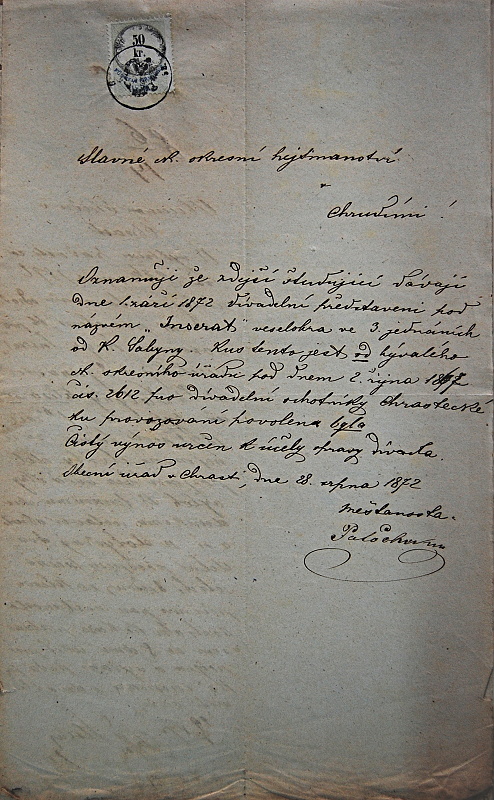 50
kr.
Slavné ck. okresní hejtmanství
v
Chrudimi!
Oznamuji že zdejší študující dávají
dne 1. září 1872 divadelní představení pod
názvem „Inserat" veselohra ve 3. jednáních
od K. Sabyny. Kus tento jest od bývalého
ck. okresního úřadu pod dnem 2. října
čís. 2612 pro divadelní ochotníky Chrastecké
ku provozování povolen byla
Čistý výnos určen k účely opravy divadla.
Obecní úřad v Chrasti, dne 28. srpna 1872
Měšťanosta